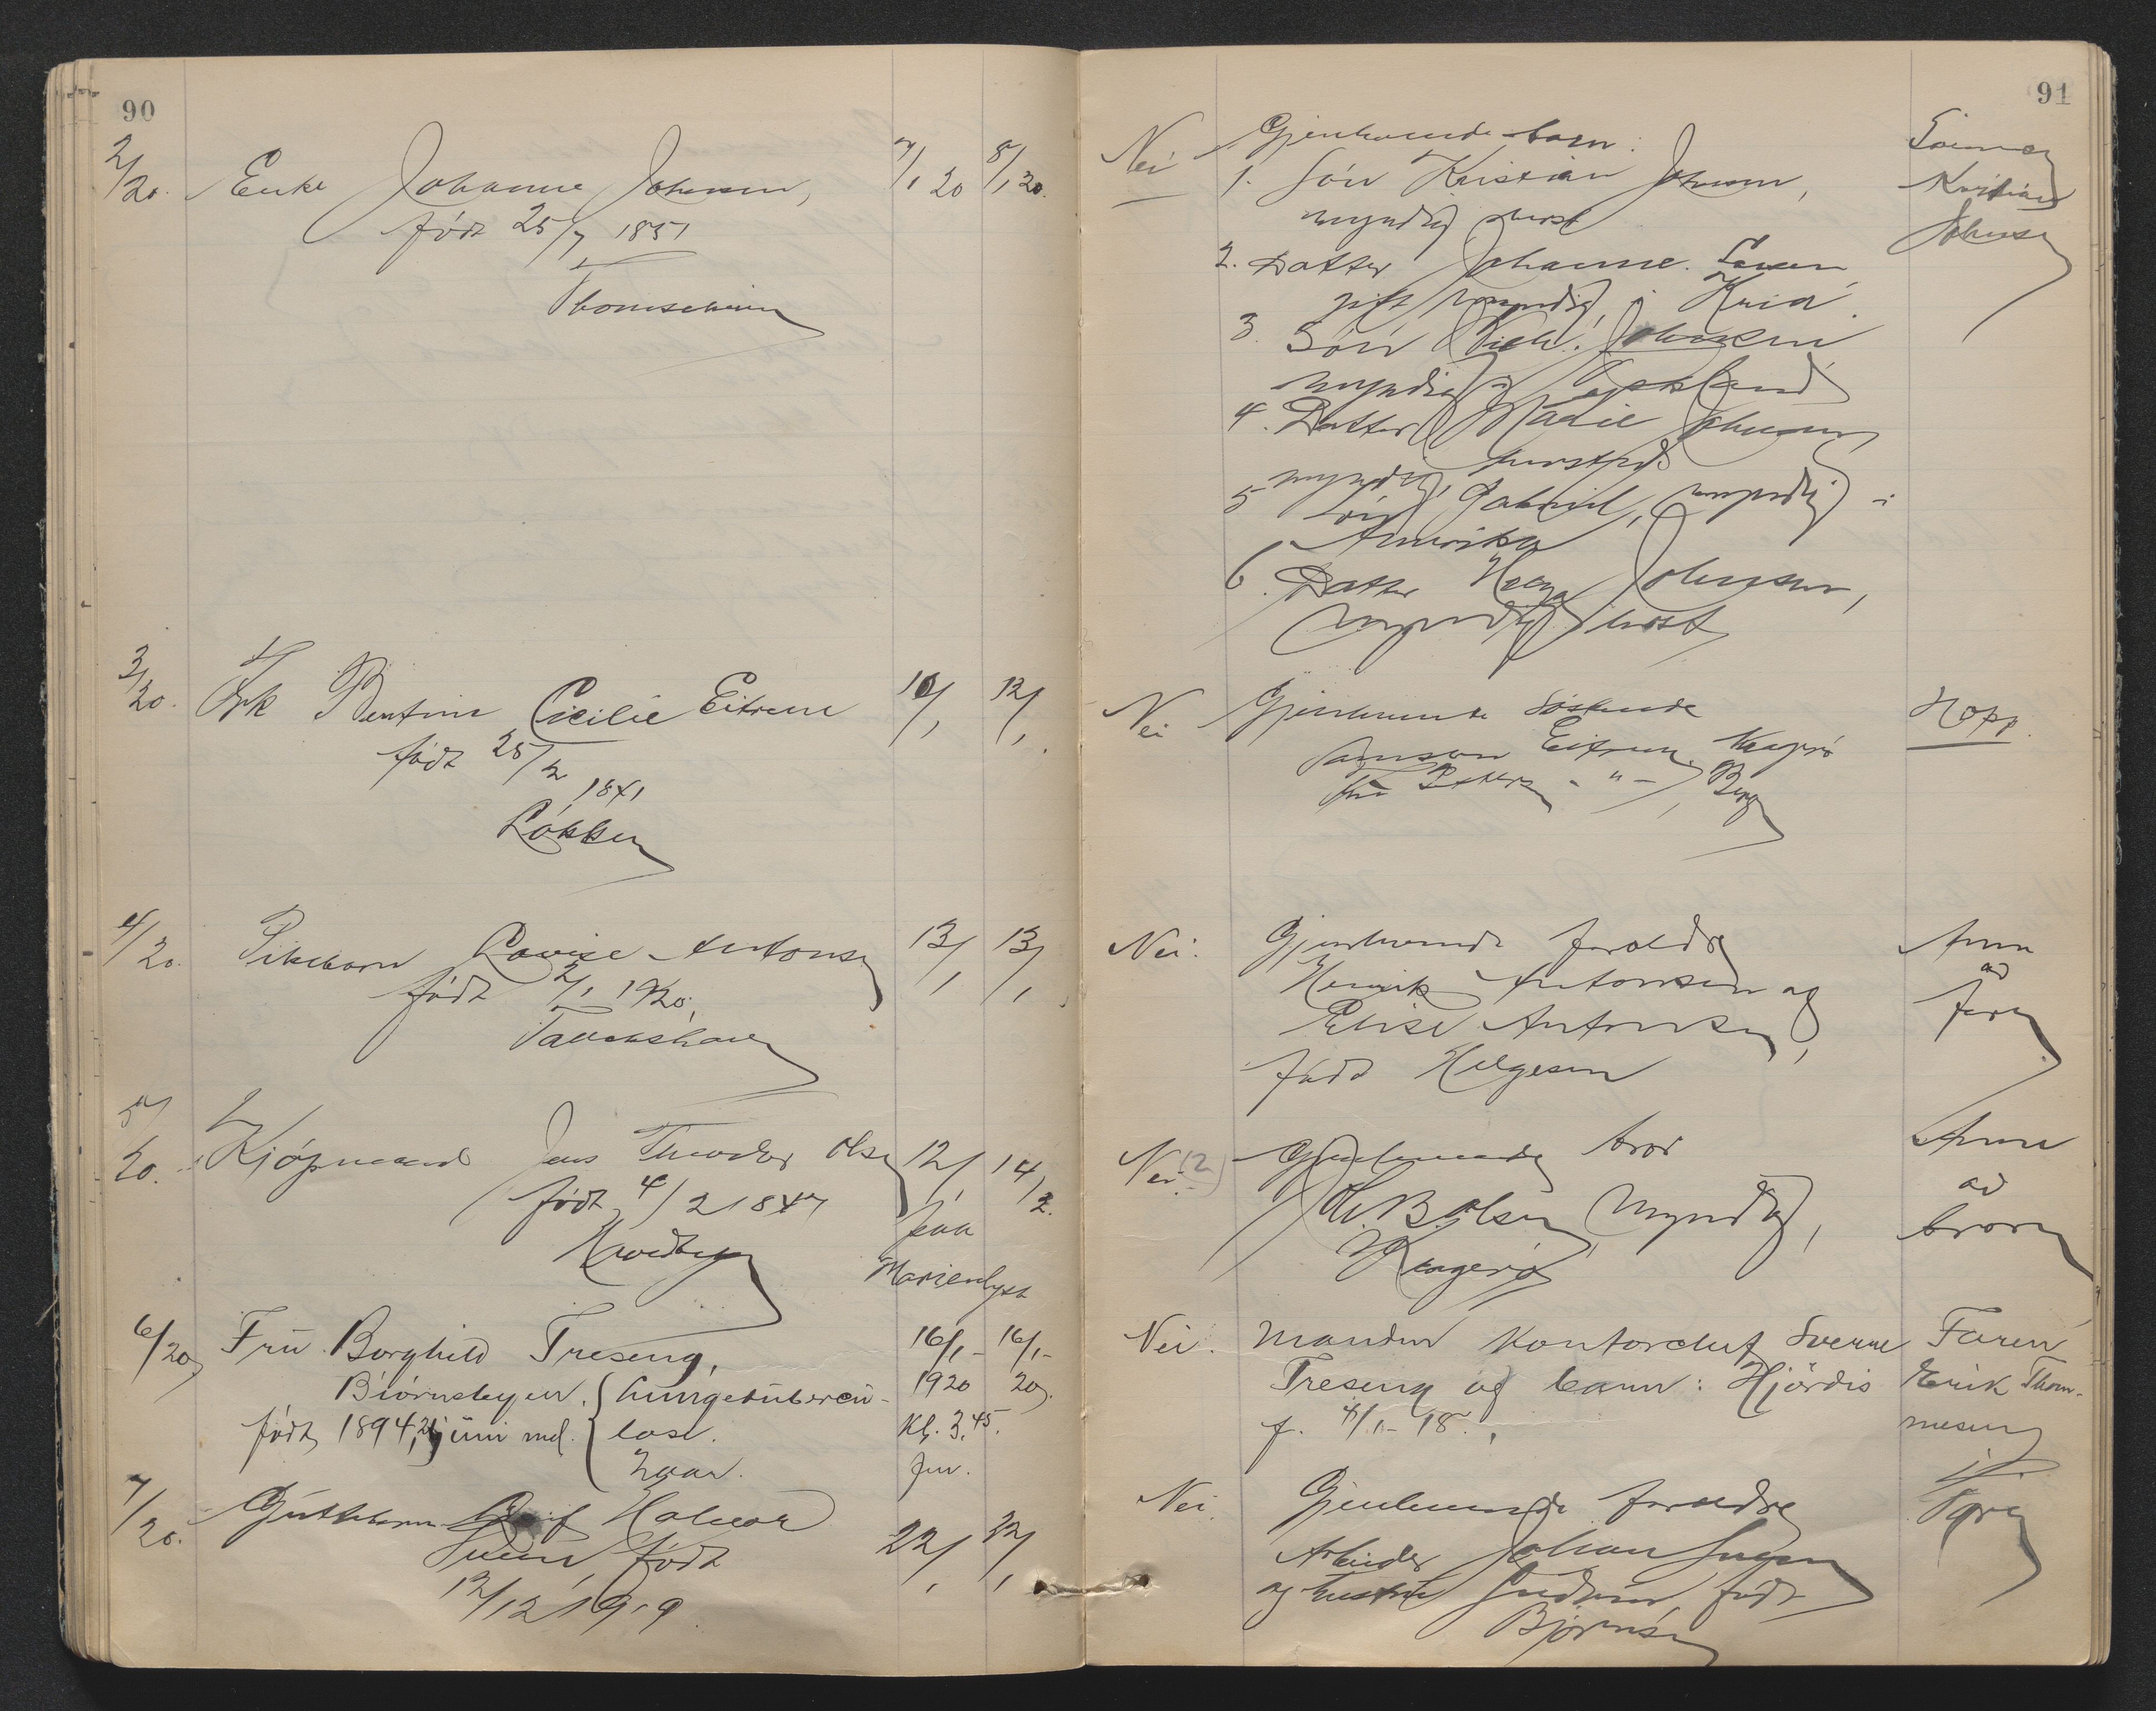 90
2/20. Enke Johanne Johnsen, 7/1 20 8/1 20.
født 25/7 1851
3/20. Frk Bentine Cicilie Eitrem 10/1 12/1.
født 25/2
1841
Løkken
4/20. Pikebarn Lovise Antonsen 13/1 13/1.
født 2/1 1920.
5/20. Kjøpmand Jens Theodor Olsen 12/1 14/2.
født 4/2 1847
paa
Marienlyst
6/20 Fru Borghild Treseng, 16/1- 16/1-
Biørnsbyen. lungetuberku- 1920 20.
født 1894, 21 juni md. lose. Kl. 3.45.
2 aar. fm.
7/20. Guttebarn Leif Halvor 22/1 22/1
født
12/12 1919.
91
Nei Gjenlevende barn:
1. Søn Kristian Johnsen,
myndig
2. Datter Johanne
gift, myndig, i Kr.ia.
3. Søn Johnsen
myndig i Tyskland
4. Datter Marie Johnsen,
myndig,
5 Søn Gabriel, myndig i
Amerika
6. Datter Johnsen,
myndig
Sønnen
Kristian
Johnsen
Nei Gjenlevende Søskende Hopp.
Eitrem Kragerø
Fru - " - Berg
Nei. Gjenlevende foreldre
Henrik Antonsen og
Elise Antonsen,
født Helgesen
Anm
av
faren
Nei. (2) Gjenlevende bror
Olsen, myndig,
Kragerø
Anm
av
broren
Nei. Manden Kontorchef Sverre Faren
Treseng og barn: Hjørdis Erik Thom-
f. 4/1-18., mesen
Nei. Gjenlevende foreldre
Arbeider Johan
og hustru Gudrun, født
Bjørnsen
Faren